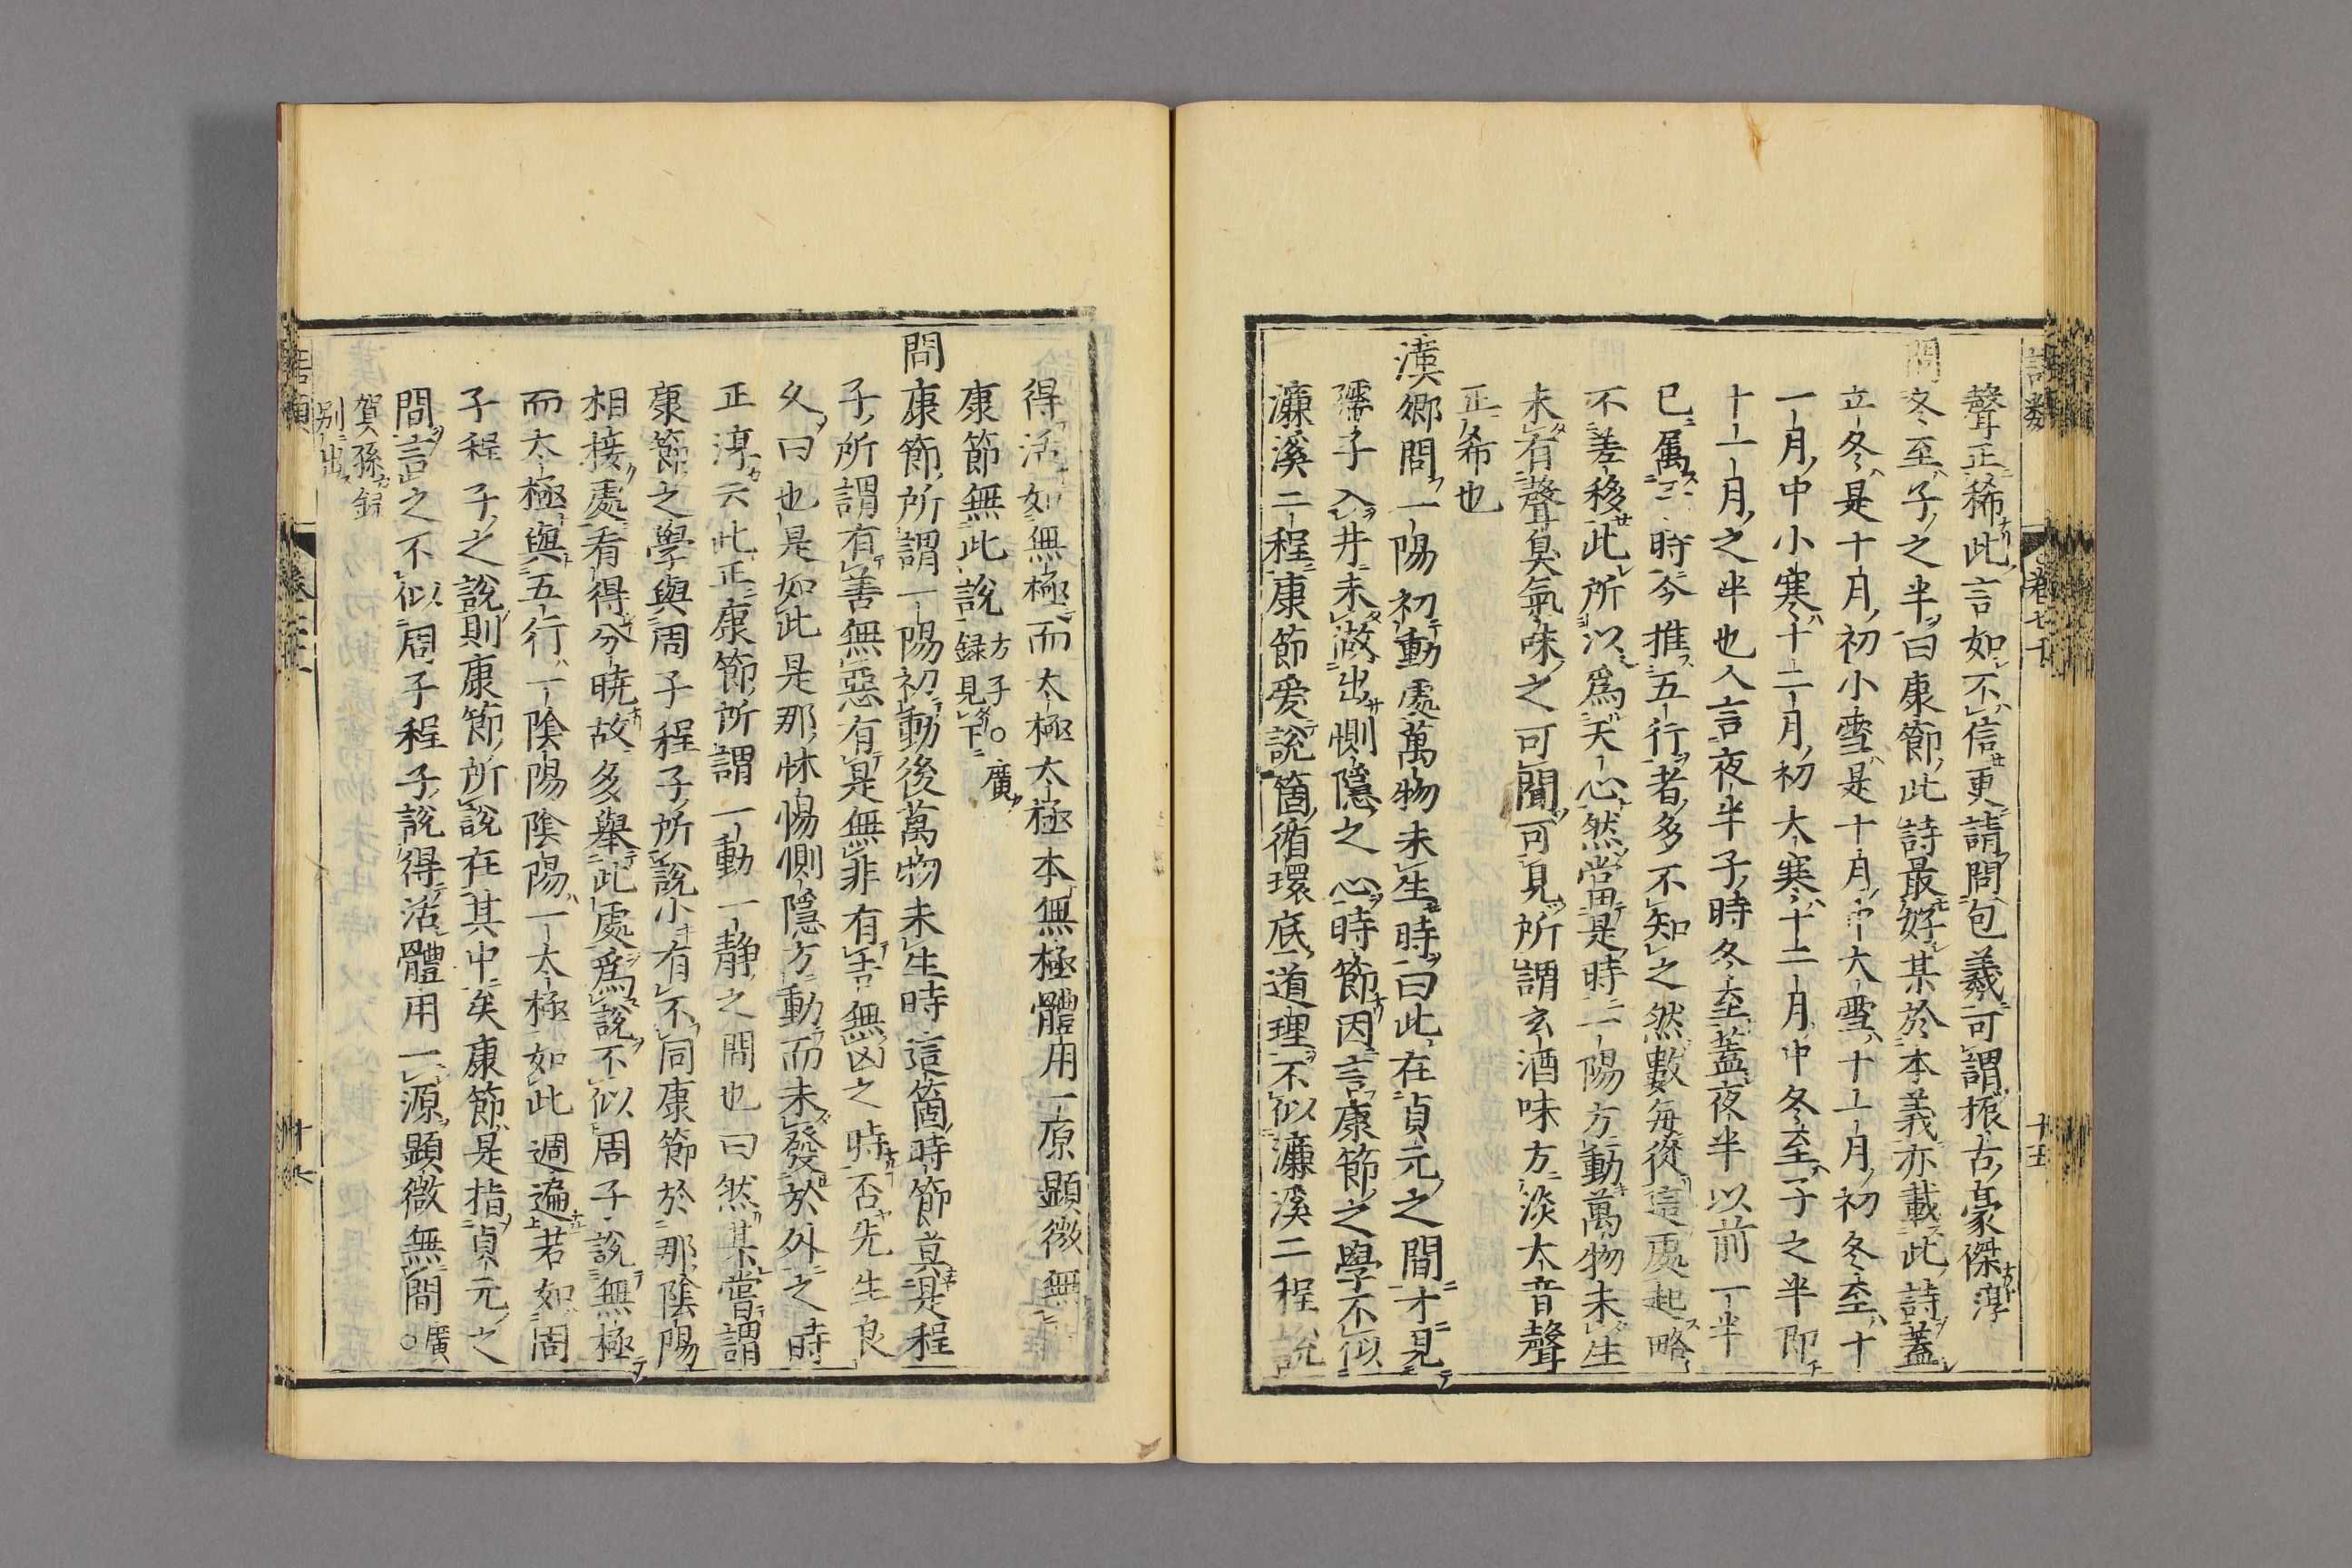 語類 卷七十一 十五
聲正稀此言如不信更請問包羲可謂振古豪傑淳
問冬至子之半曰康節此詩最好某於本義亦載此詩蓋
立冬是十月初小雪是十月中大雪十一月初冬至十
一月中小寒十二月初大寒十二月中冬至子之半即
十一月之半也人言夜半子時冬至蓋夜半以前一半
已属子時今推五行者多不知之然數每從這處起略
不差移此所以爲天心然當是時一陽方動萬物未生
未有聲臭氣味之可聞可見所謂玄酒味方淡大音聲
正希也
漢卿問一陽初動處萬物未生時曰此在貞元之間才見
孺子入井未做出惻隱之心時節因言康節之學不似
濂溪二程康節愛說箇循環底道理不似濂溪二程說
得活如無極而太極太極本無極體用一原顯微無
康節無此說方子○廣録見下
問康節所謂一陽初動後萬物未生時這箇時節莫是程
子所謂有善無惡有是無非有吉無凶之時否先生良
久曰也是如此是那怵惕惻隱方動而未發於外之時
正淳云此正康節所謂一動一静之間也曰然某嘗謂
康節之學與周子程子所說小有不同康節於那隂陽
相接處看得分曉故多舉此處爲說不似周子說無極
而太極與五行一隂陽隂陽一太極如此週遍若如周
子程子之說則康節所說在其中矣康節是指貞元之
間言之不似周子程子說得活體用一源顯微無間廣○
賀孫録
别出
語類